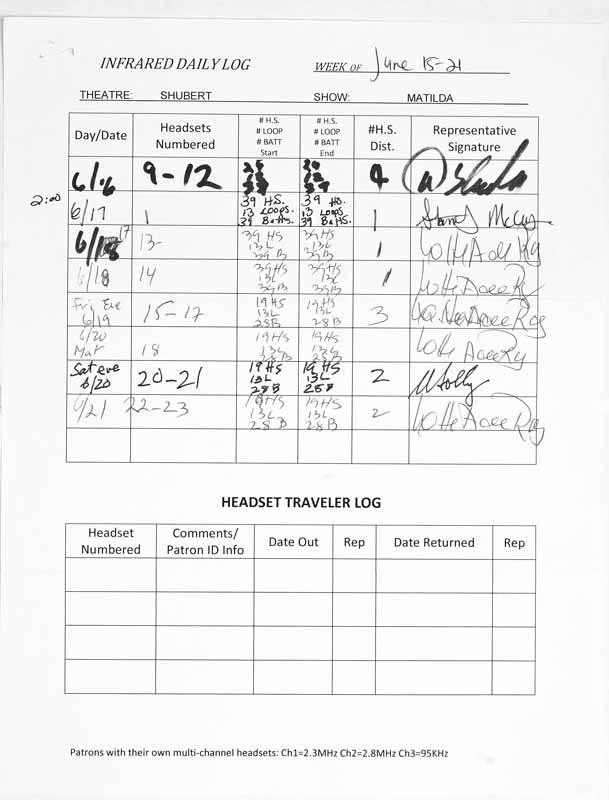 INFRARED DAILY LOG WEEK OF June 15-21
THEATRE: SHUBERT SHOW: MATILDA
Day/Date Headsets Numbered # H.S. # LOOP # BATT Start # H.S. # LOOP # BATT End #H.S. Dist. Representative Signature
6/16 9-12 4
2:00
6/17 1 39 HS. 13 Loops. 39 Batts. 39 HS. 13 Loops. 39 Batts. 1
6/18 17 13- 39 HS 13L 39 B 39 HS 13L 39 B 1
6/18 14 39HS 13L 39B 39HS 13L 39B 1
Fri Eve 6/19 15-17 19HS 13L 28B 19HS 13L 28B 3
6/20 Mat 18 19HS 13L 28B 19HS 13L 28B
Sat eve 6/20 20-21 19 HS 13L 28B 19 HS 13L 28B 2
6/21 22-23 19HS 13L 28B 19HS 13L 28B 2
HEADSET TRAVELER LOG
Headset Numbered Comments/ Patron ID Info Date Out Rep Date Returned Rep
Patrons with their own multi-channel headsets: Ch1=2.3MHz Ch2=2.8MHz Ch3=95KHz